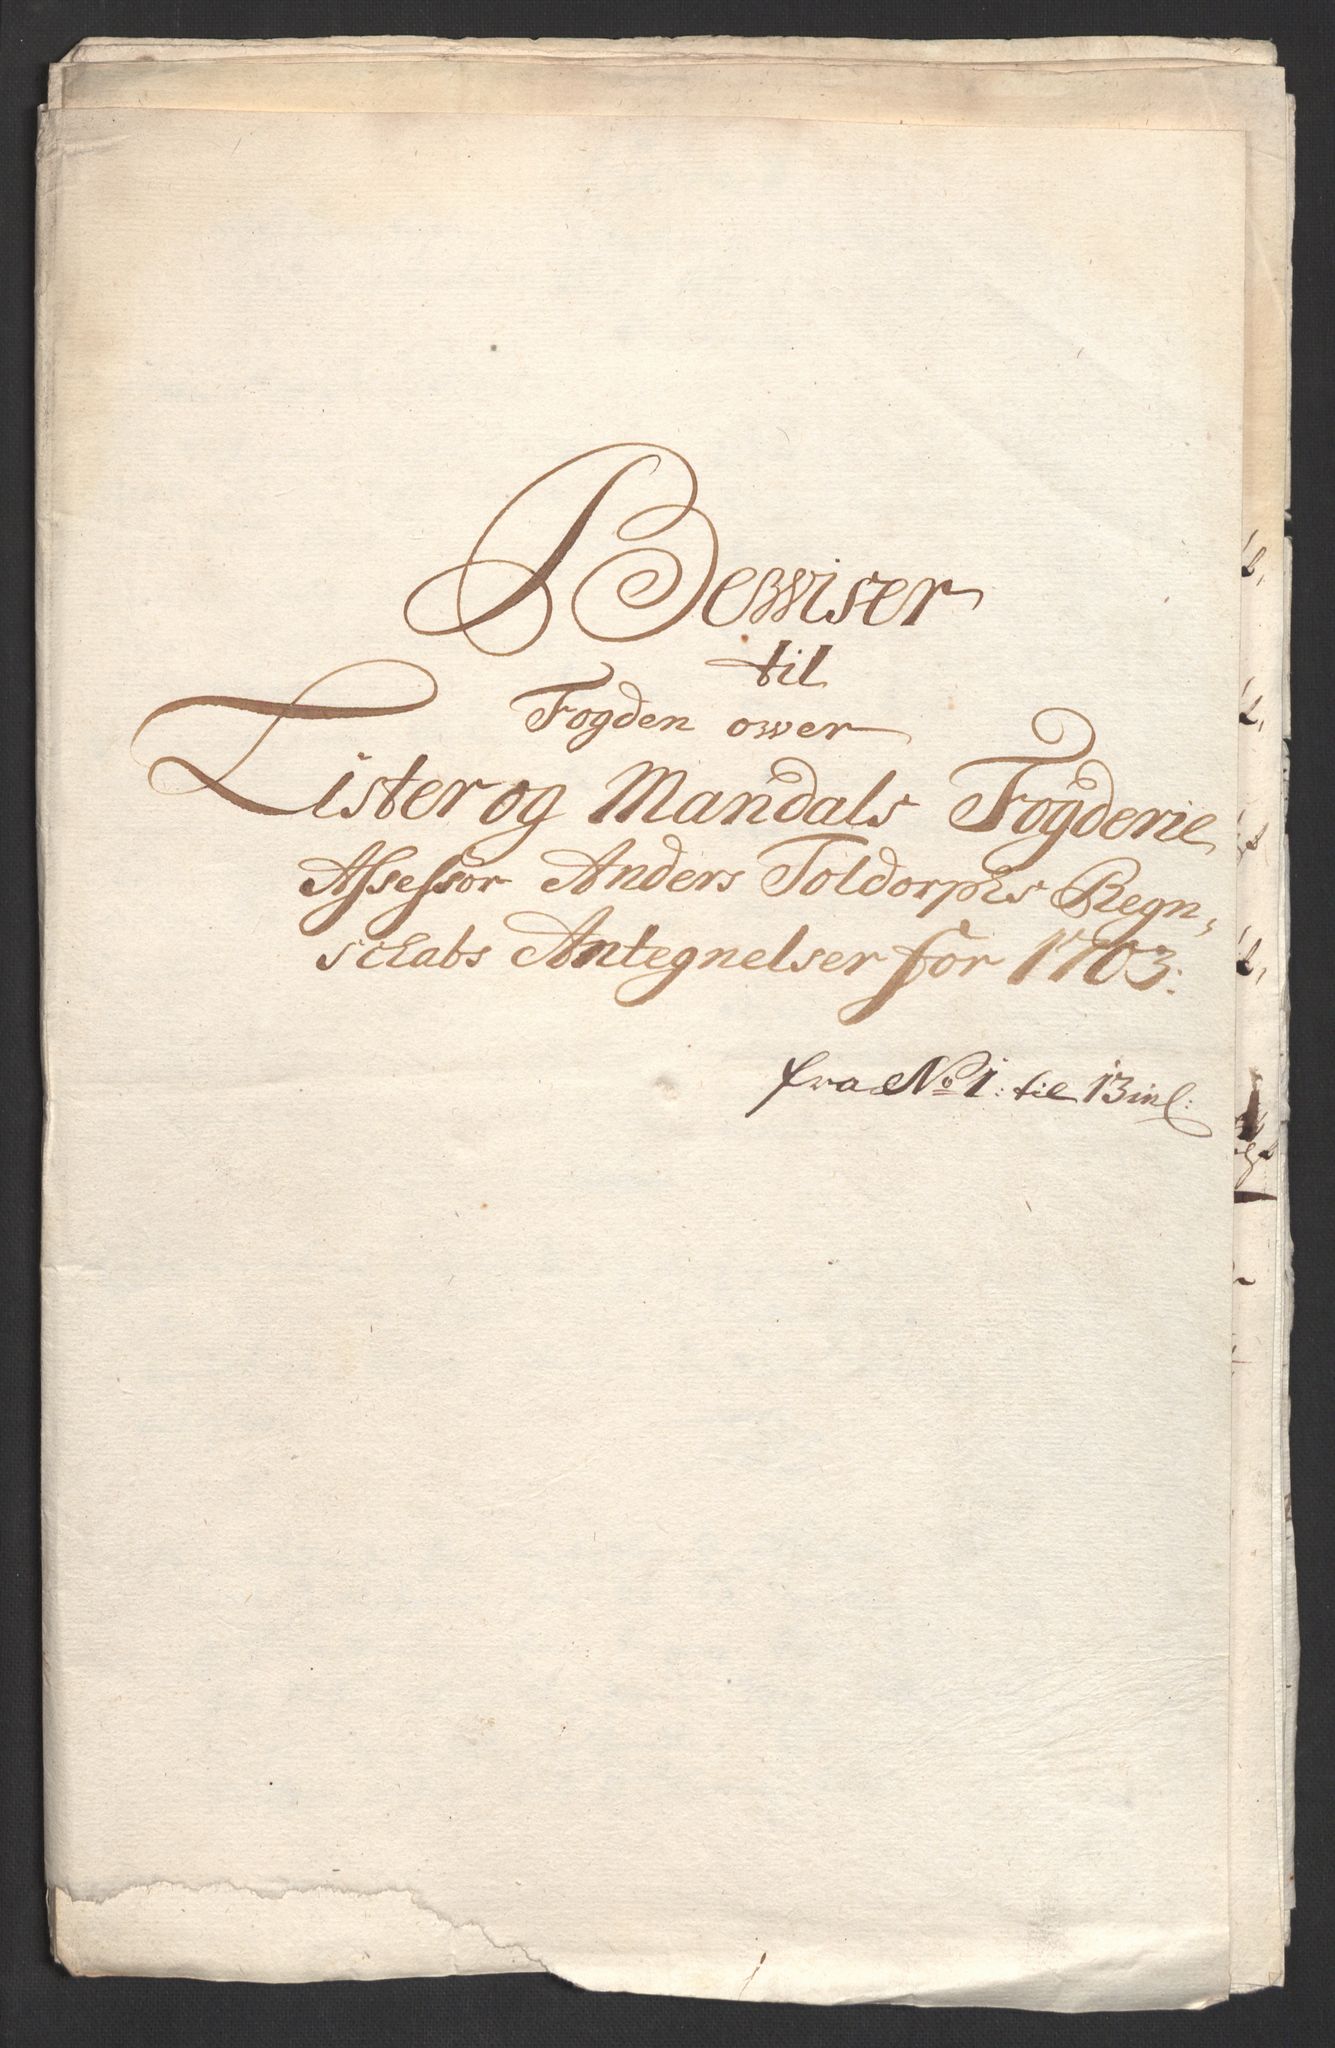 Bewiser
til
Fogden ower
Lister og Mandals Fogderie
Assessor Anders Toldorphs Regn,
schabs Antegnelser for 1703.
fra No 1: til 13 incl: